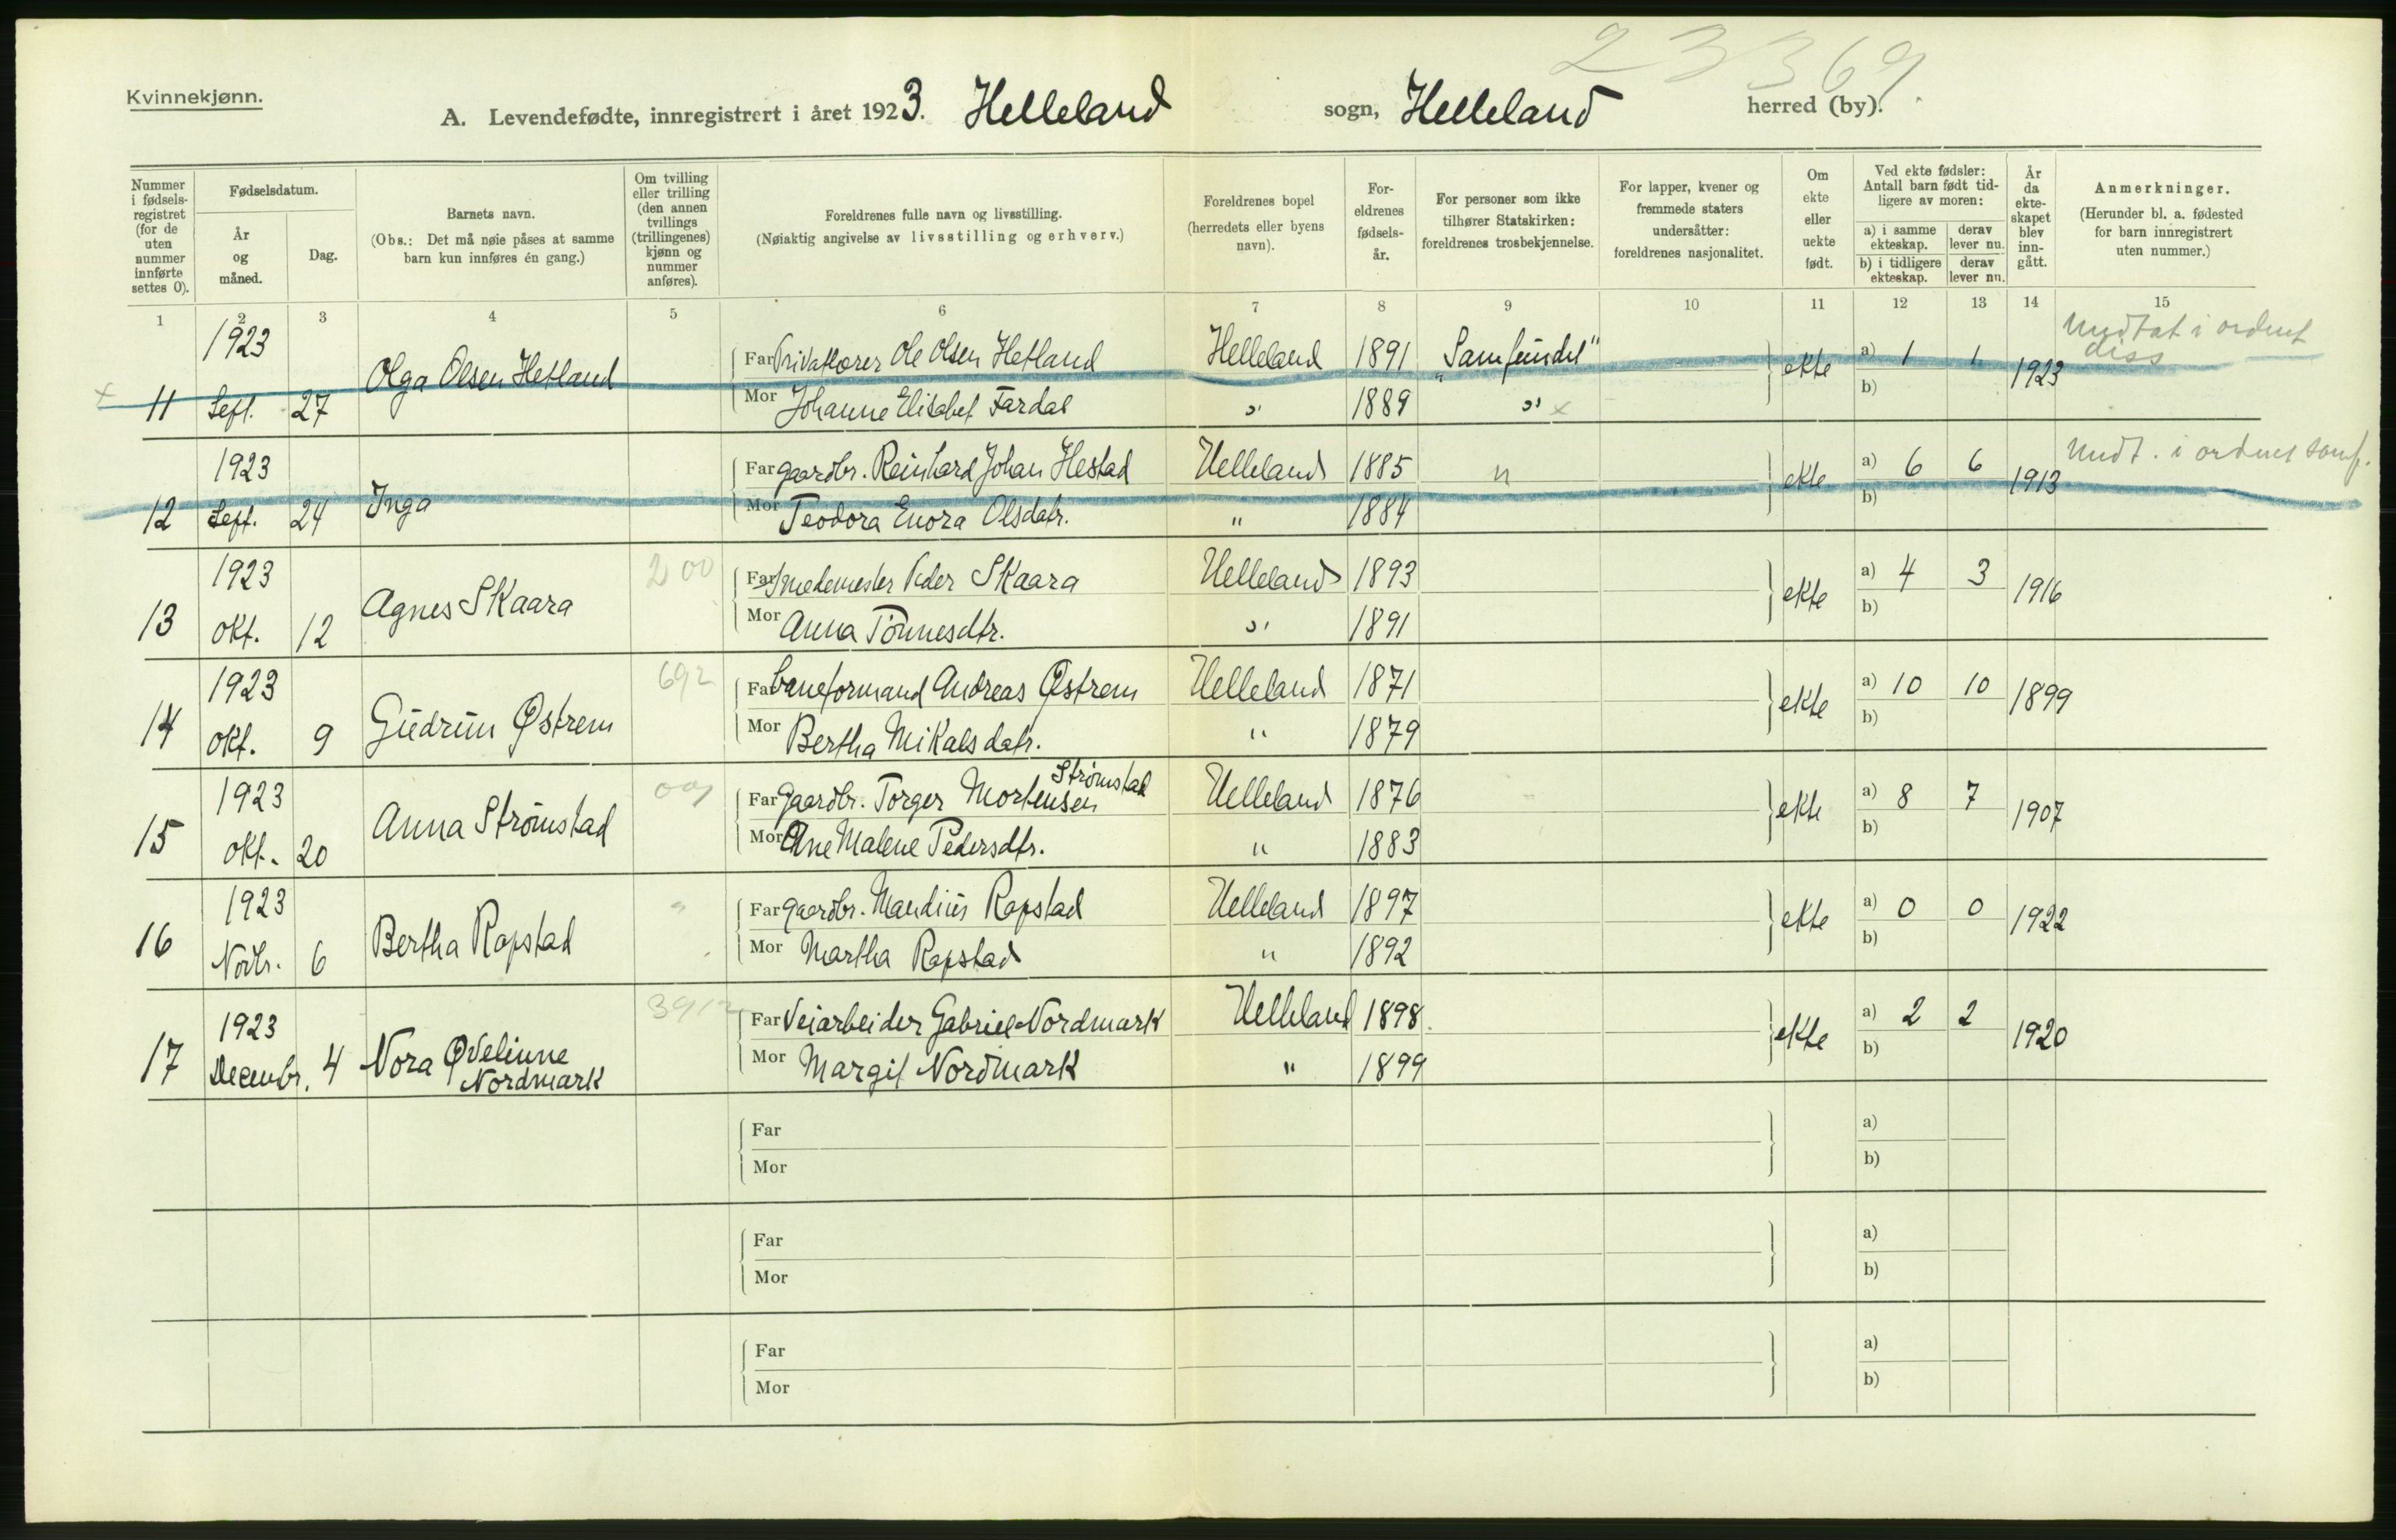 23369
Kvinnekjønn.
A. Levendefødte, innregistrert i året 1923. Helleland sogn, Helleland herred (by).
Nummer i fødsels-registret (for de uten nummer innførte settes 0).
Fødselsdatum.
År og måned.
Dag.
Barnets navn.
(Obs.: Det må nøie påses at samme barn kun innføres én gang.)
Om tvilling eller trilling (den annen tvillings (trillingenes) kjønn og nummer anføres).
Foreldrenes fulle navn og livsstilling.
(Nøiaktig angivelse av livsstilling og erhverv.)
Foreldrenes bopel (herredets eller byens navn).
For-eldrenes fødsels-år.
For personer som ikke tilhører Statskirken: foreldrenes trosbekjennelse.
For lapper, kvener og fremmede staters undersåtter: foreldrenes nasjonalitet.
Om ekte eller uekte født.
Ved ekte fødsler: Antall barn født tid-ligere av moren:
a) i samme ekteskap. derav lever nu.
b) i tidligere ekteskap. derav lever nu.
År da ekte-skapet blev inn-gått.
Anmerkninger.
(Herunder bl. a. fødested for barn innregistrert uten nummer.)
1 2 3 4 5 6 7 8 9 10 11 12 13 14 15
x 11 1923 Sept. 27 Olga Olsen Hetland
Far Privatlærer Ole Olsen Hetland Helleland 1891 "Samfundet" ekte a) 1 1 1923
Mor Johanne Elisabet Fardal " 1889 " x b)
Undtat i ordnet diss
12 1923 Sept. 24 Inga
Far gaardbr. Reinhard Johan Hestad Helleland 1885 " ekte a) 6 6 1913
Mor Teodora Enora Olsdatr. " 1884 b)
Undt. i ordnet samf.
13 1923 Okt. 12 Agnes Skaara 200
Far Smedemester Peder Skaara Helleland 1893 ekte a) 4 3 1916
Mor Anna Tönnesdtr. " 1891 b)
14 1923 Okt. 9 Gudrun Østrem 692
Far Baneformand Andreas Østrem Helleland 1871 ekte a) 10 10 1899
Mor Bertha Mikalsdatr. " 1879 b)
15 1923 Okt. 20 Anna Strømstad
Far Gaardbr. Torger Mortensen Strømstad Helleland 1876 ekte a) 8 7 1907
Mor Ane Malene Pedersdtr. " 1883 b)
16 1923 Novbr. 6 Bertha Rapstad "
Far gaardbr. Mandius Rapstad Helleland 1897 ekte a) 0 0 1922
Mor Martha Rapstad " 1892 b)
17 1923 Decembr. 4 Nora Øvelinne Nordmark
Far Veiarbeider Gabriel Nordmark Helleland 1898 ekte a) 2 2 1920
Mor Margit Nordmark " 1899 b)
Far a)
Mor b)
Far a)
Mor b)
Far a)
Mor b)